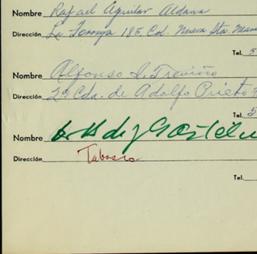 Nombre Rafael Aguilar Aldana
Dirección La Torreya 185, Col. Nueva Sta Mar
Tel. 5
Nombre Alfonso S. Treviño
Dirección 2ª Cda. de Adolfo Prieto
Tel. 5
Nombre
Dirección Tabasco
Tel.